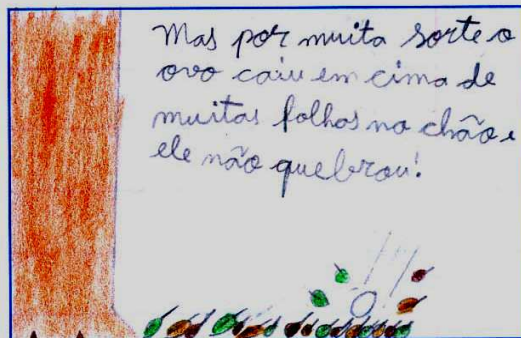 Mas por muita sorte o
ovo caiu em cima de
muitas folhas no chão e
ele não quebrou!